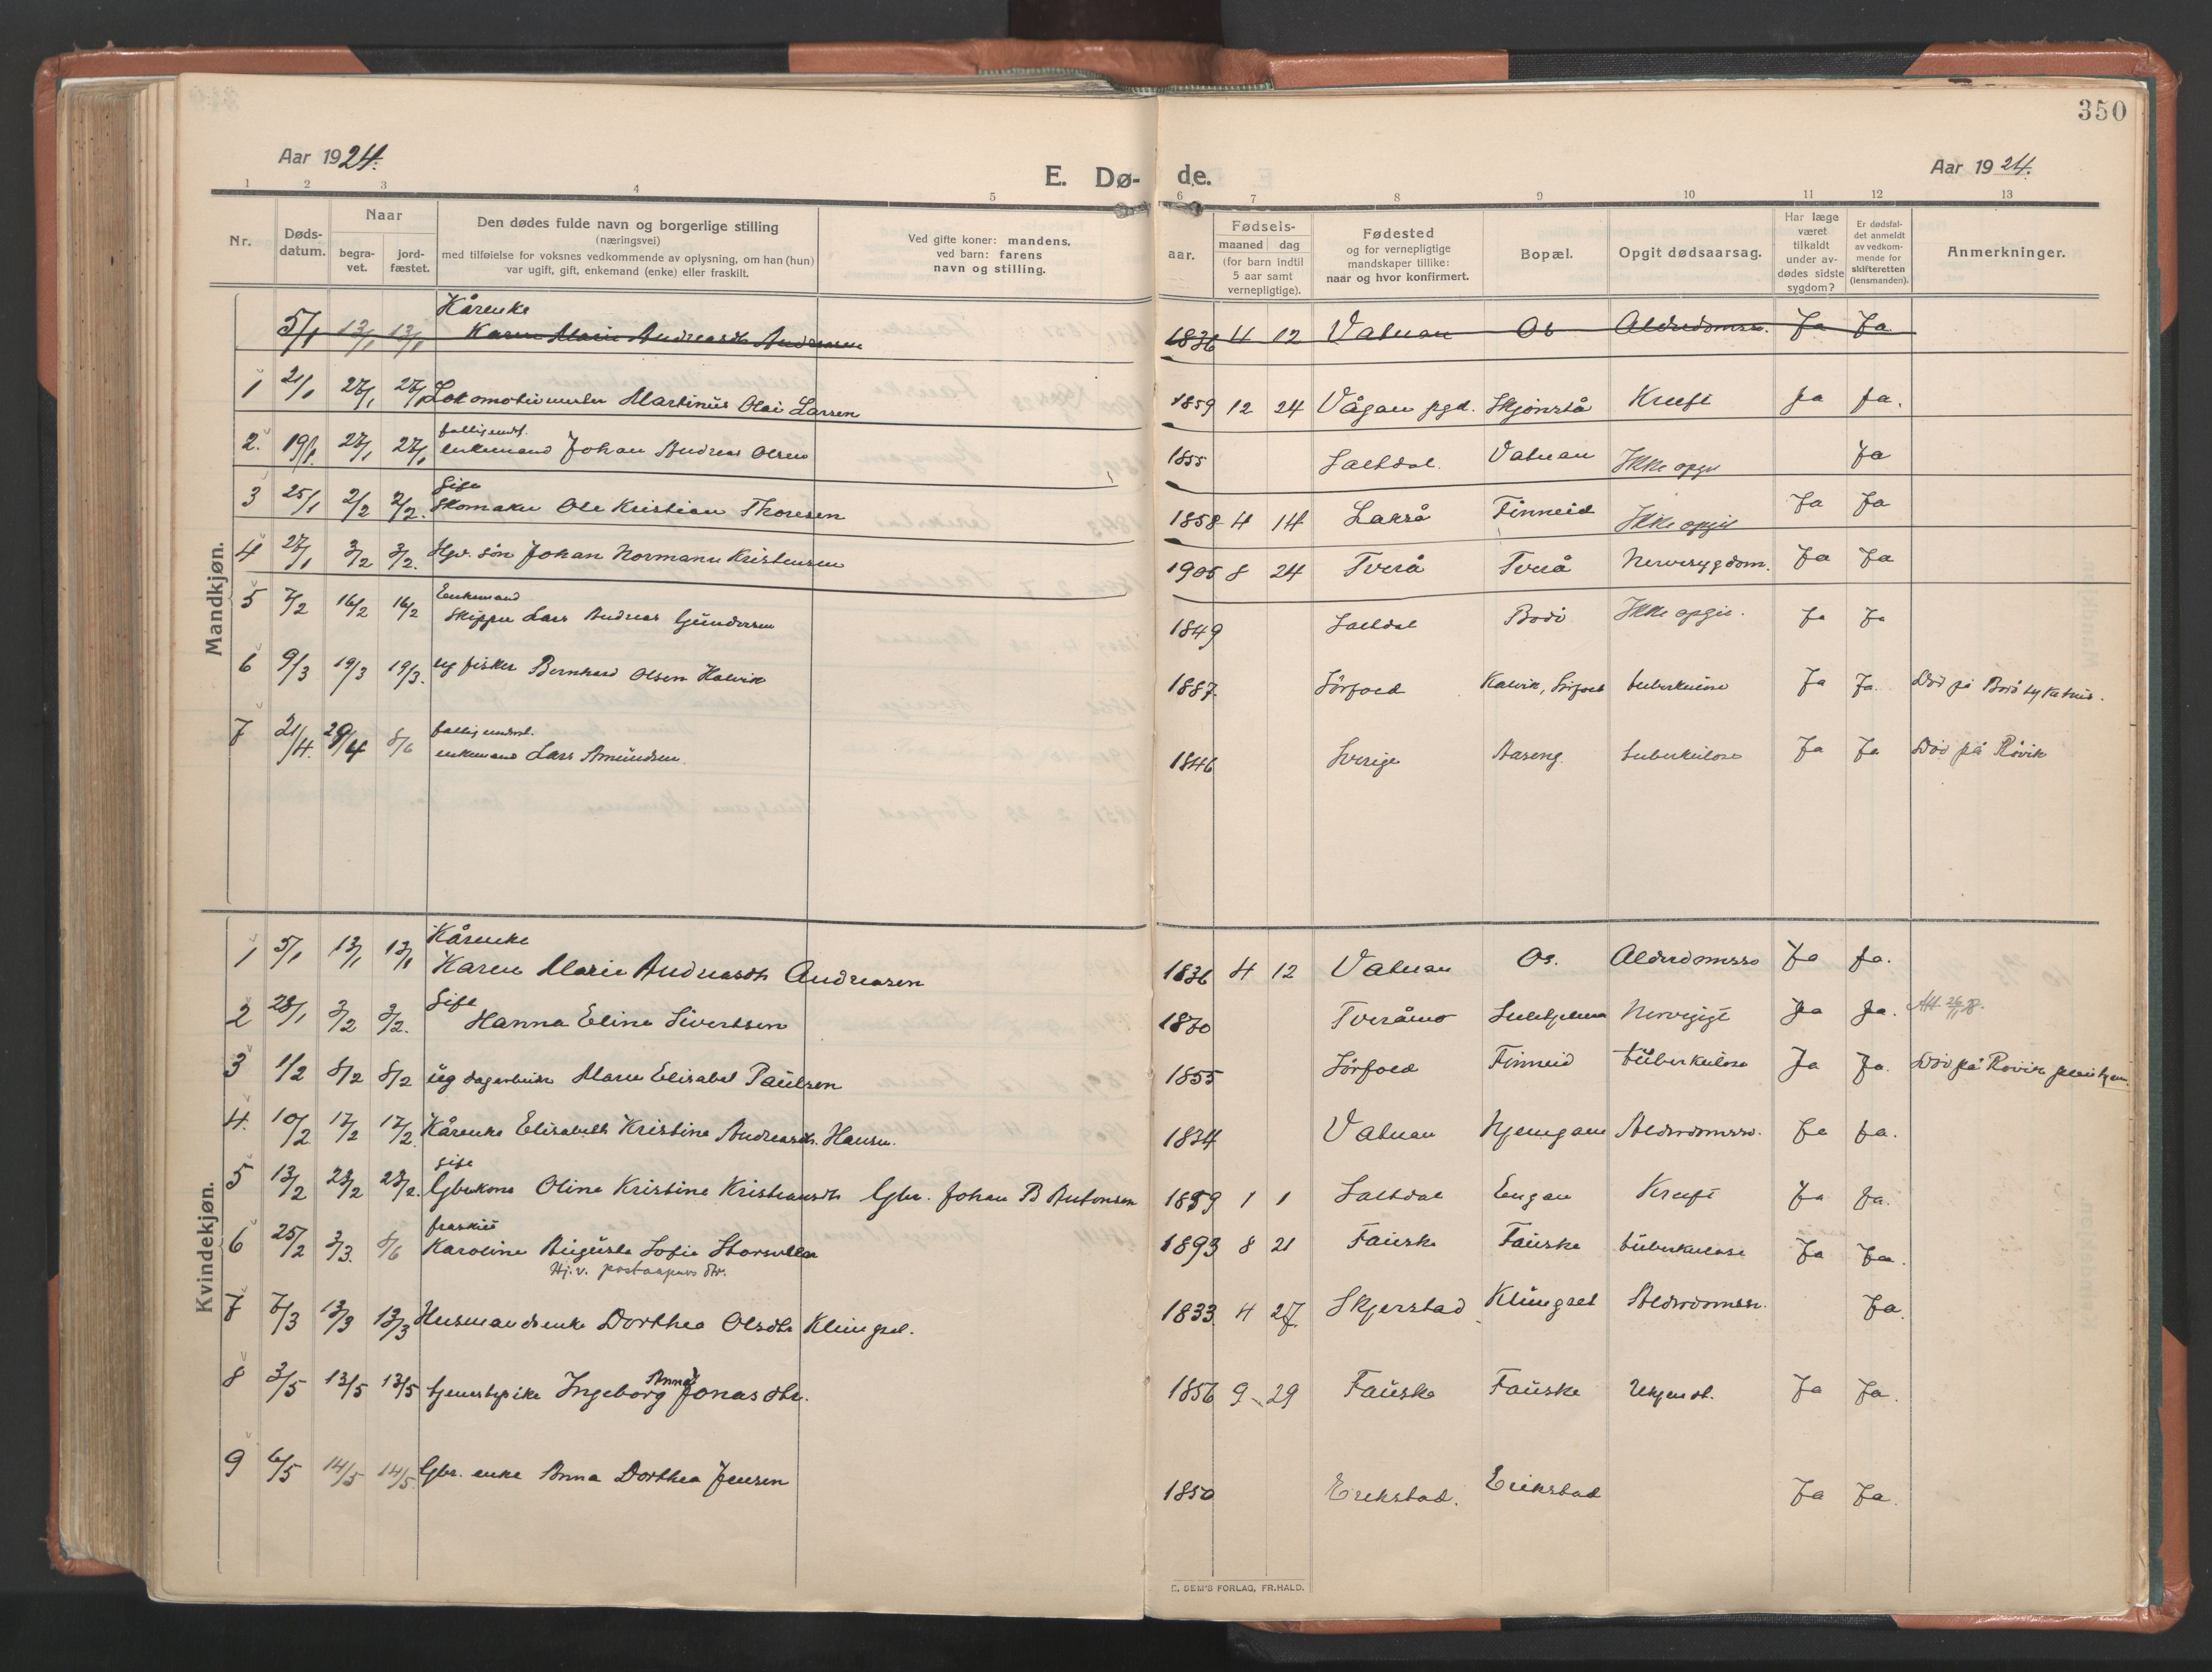 350
Aar 1924.
E. Dø-
de.
Aar 1924.
1 2 3 4 5 6 7 8 9 10 11 12 13
Nr.
Døds-
datum.
Naar
begra-
vet.
jord-
fæstet.
Den dødes fulde navn og borgerlige stilling
(næringsvei)
med tilføielse for voksnes vedkommende av oplysning, om han (hun)
var ugift, gift, enkemand (enke) eller fraskilt.
Ved gifte koner: mandens,
ved barn: farens
navn og stilling.
aar.
Fødsels-
maaned dag
(for barn indtil
5 aar samt
vernepligtige).
Fødested
og for vernepligtige
mandskaper tillike:
naar og hvor konfirmert.
Bopæl.
Opgit dødsaarsag.
Har læge
været
tilkaldt
under av-
dødes sidste
sygdom?
Er dødsfal-
det anmeldt
av vedkom-
mende for
skifteretten
(lensmanden).
Anmerkninger.
Mandkjøn.
Kårenke
5/1 13/1 13/1 Karen Marie Andreasdtr Andreasen 1836 4 12 Vatnan Os Alderdomssv. Ja Ja
1 21/1 27/1 27/1 Lokomotivmester Martinus Olai Larsen 1859 12 24 Vågan pgd. Skjønstå Kreft Ja Ja.
fattigunderst.
2. 19/1 27/1 27/1 enkemand Johan Andreas Olsen 1855 Saltdal. Vatnan Ikke opgit Ja
Gift
3 25/1 2/2 2/2. Skomaker Ole Kristian Thoresen 1858 4 14 Lakså Finneid Ikke opgit Ja Ja
4 27/1 3/2 3/2. Hjv. søn Johan Normann Kristensen 1905 8 24 Tverå Tverå Nervesygdom. Ja Ja
Enkemand
5 7/2 16/2 16/2 Skipper Lars Andreas Gundersen 1849 Saltdal Bodö Ikke opgit. Ja Ja
6 9/3 19/3 19/3. ug fisker Bernhard Olsen Kalvik 1887 Sörfold Kalvik, Sörfold tuberkulose Ja Ja. Död på Bodö sykehus.
fattigunderst.
7 21/4. 29/4 8/6 enkemand Lars Amundsen. 1846 Sverige Aaseng tuberkulose Ja Ja Död på Rövik
Kvindekjøn.
Kårenke
1 5/1 13/1 13/1 Karen Marie Andreasdtr Andreasen 1836 4 12 Vatnan Os. Alderdomssv Ja Ja.
Gift
2 28/1 3/2 3/2. Hanna Eline Sivertsen 1870 Tveråmo Sulitjelma Nervegigt Ja Ja.
3 1/2 8/2 8/2 ug dagarbeider Maren Elisabet Paulsen 1855 Sörfold Finneid tuberkulose Ja Ja. Död på Rövik pleiehjem.
4. 10/2 17/2 17/2. Kårenke Elisabeth Kristine Andreasdtr. Hansen. 1834 Vatnan Alderdomssv. Ja Ja.
gift
5 13/2 23/2 23/2. Gbrkone Oline Kristine Kristiansdtr Gbr. Johan B Antonsen 1859 1 1 Saltdal Engan Kreft Ja Ja.
fraskilt
6 25/2 3/3. 8/6 Karoline Auguste Sofie Storvollen 1893 8 21 Fauske Fauske tuberkulose Ja Ja.
Hj.v. postaapners dtr.
7 7/3 13/3 13/3 Husmandsenke Dorthea Olsdtr Klungset. 1833 4 27. Skjerstad Klungset Alderdomssv. Ja.
8 3/5 13/5 13/5 tjenestepike Ingeborg Anna Jonasdtr. 1856 9 29 Fauske Fauske Ukjendt. Ja Ja.
9 6/5 14/5 14/5. Gbr. enke Anna Dorthea Jensen 1850 Erikstad. Erikstad Ja Ja.
E. SEM'S FORLAG, FR.HALD.